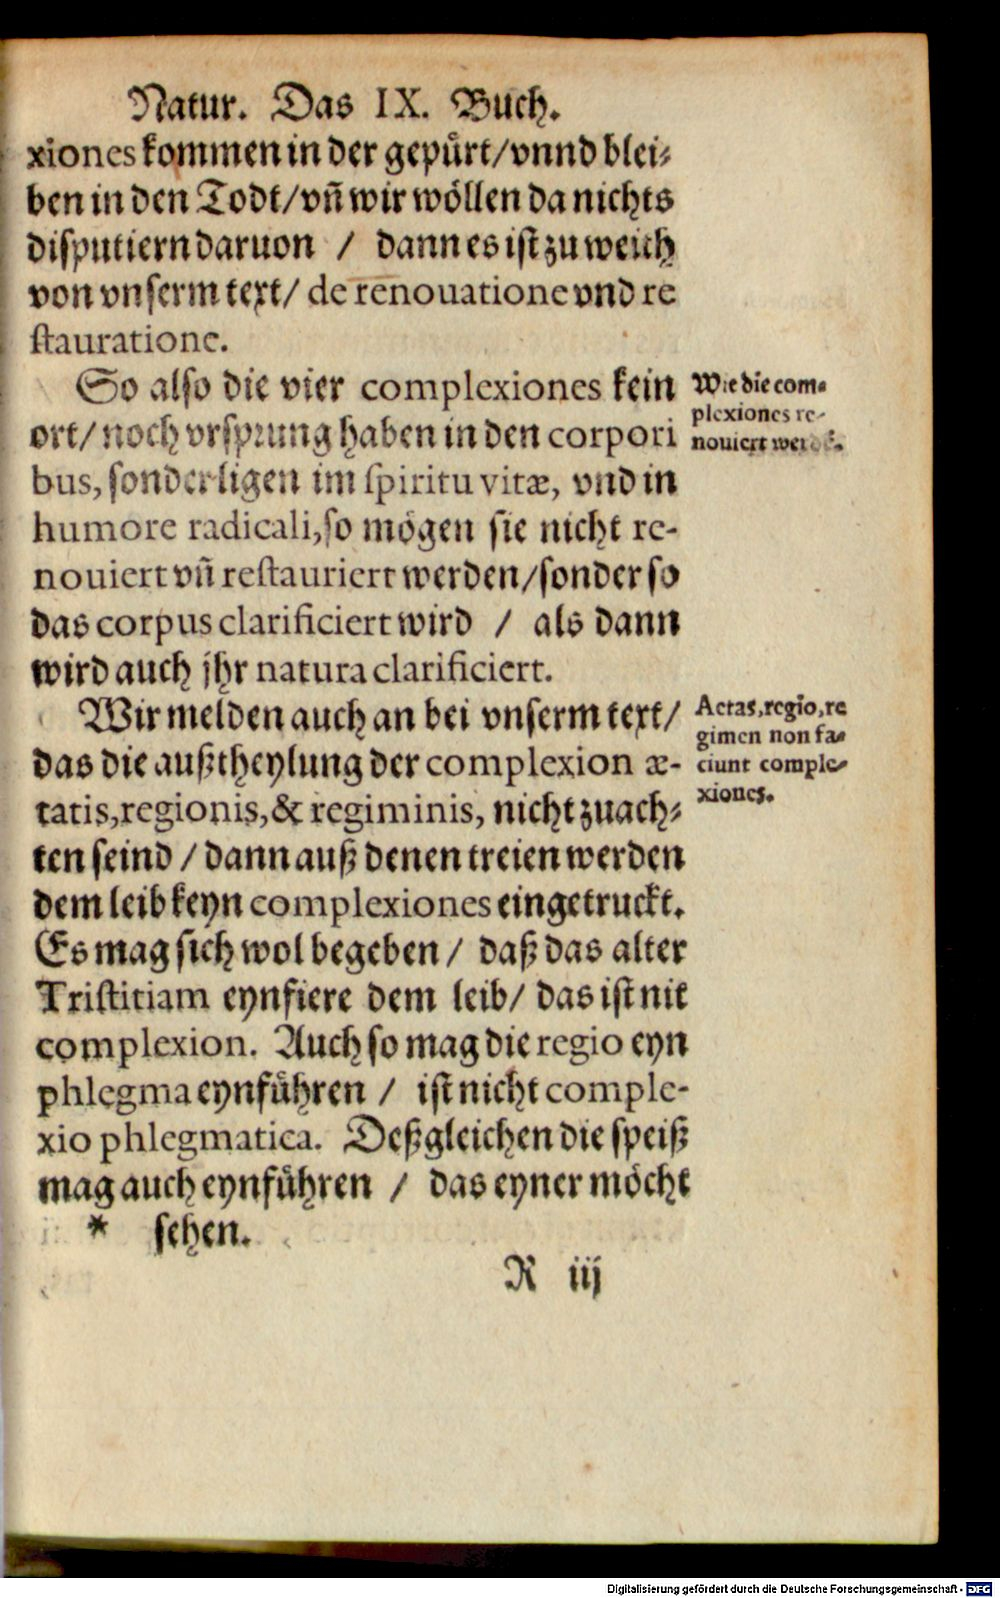 Natur. Das IX. Buch.
xiones kommen in der gepuͤrt/vnnd blei⸗
ben in den Todt/vñ wir woͤllen da nichts
disputiern daruon / dann es ist zu weith
von vnserm text/ de renouatione vnd re
stauratione.
So also die vier complexiones kein
ort/ noch vrsprung haben in den corpori
bus, sonderligen im spiritu vitæ, vnd in
humore radicali, so moͤgen sie nicht re-
nouiert vñ restauriert werden/sonder so
das corpus clarificiert wird / als dann
wird auch jhr natura clarificiert.
Wie die com⸗
plexiones re-
nouiert
Wir melden auch an bei vnserm text/
das die außtheylung der complexion æ-
tatis, regionis, & regiminis, nicht zuach⸗
ten seind / dann auß denen treien werden
dem leib keyn complexiones eingetruckt.
Es mag sich wol begeben / daß das alter
Tristitiam eynfiere dem leib/ das ist nit
complexion. Auch so mag die regio eyn
phlegma eynfuͤhren / ist nicht comple-
xio phlegmatica. Deßgleichen die speiß
mag auch eynfuͤhren / das eyner moͤcht
* sehen.
Aetas, regio, re
gimen non fa⸗
ciunt comple⸗
xiones.
R iij
Digitalisierung gefördert durch die Deutsche Forschungsgemeinschaft - DFG